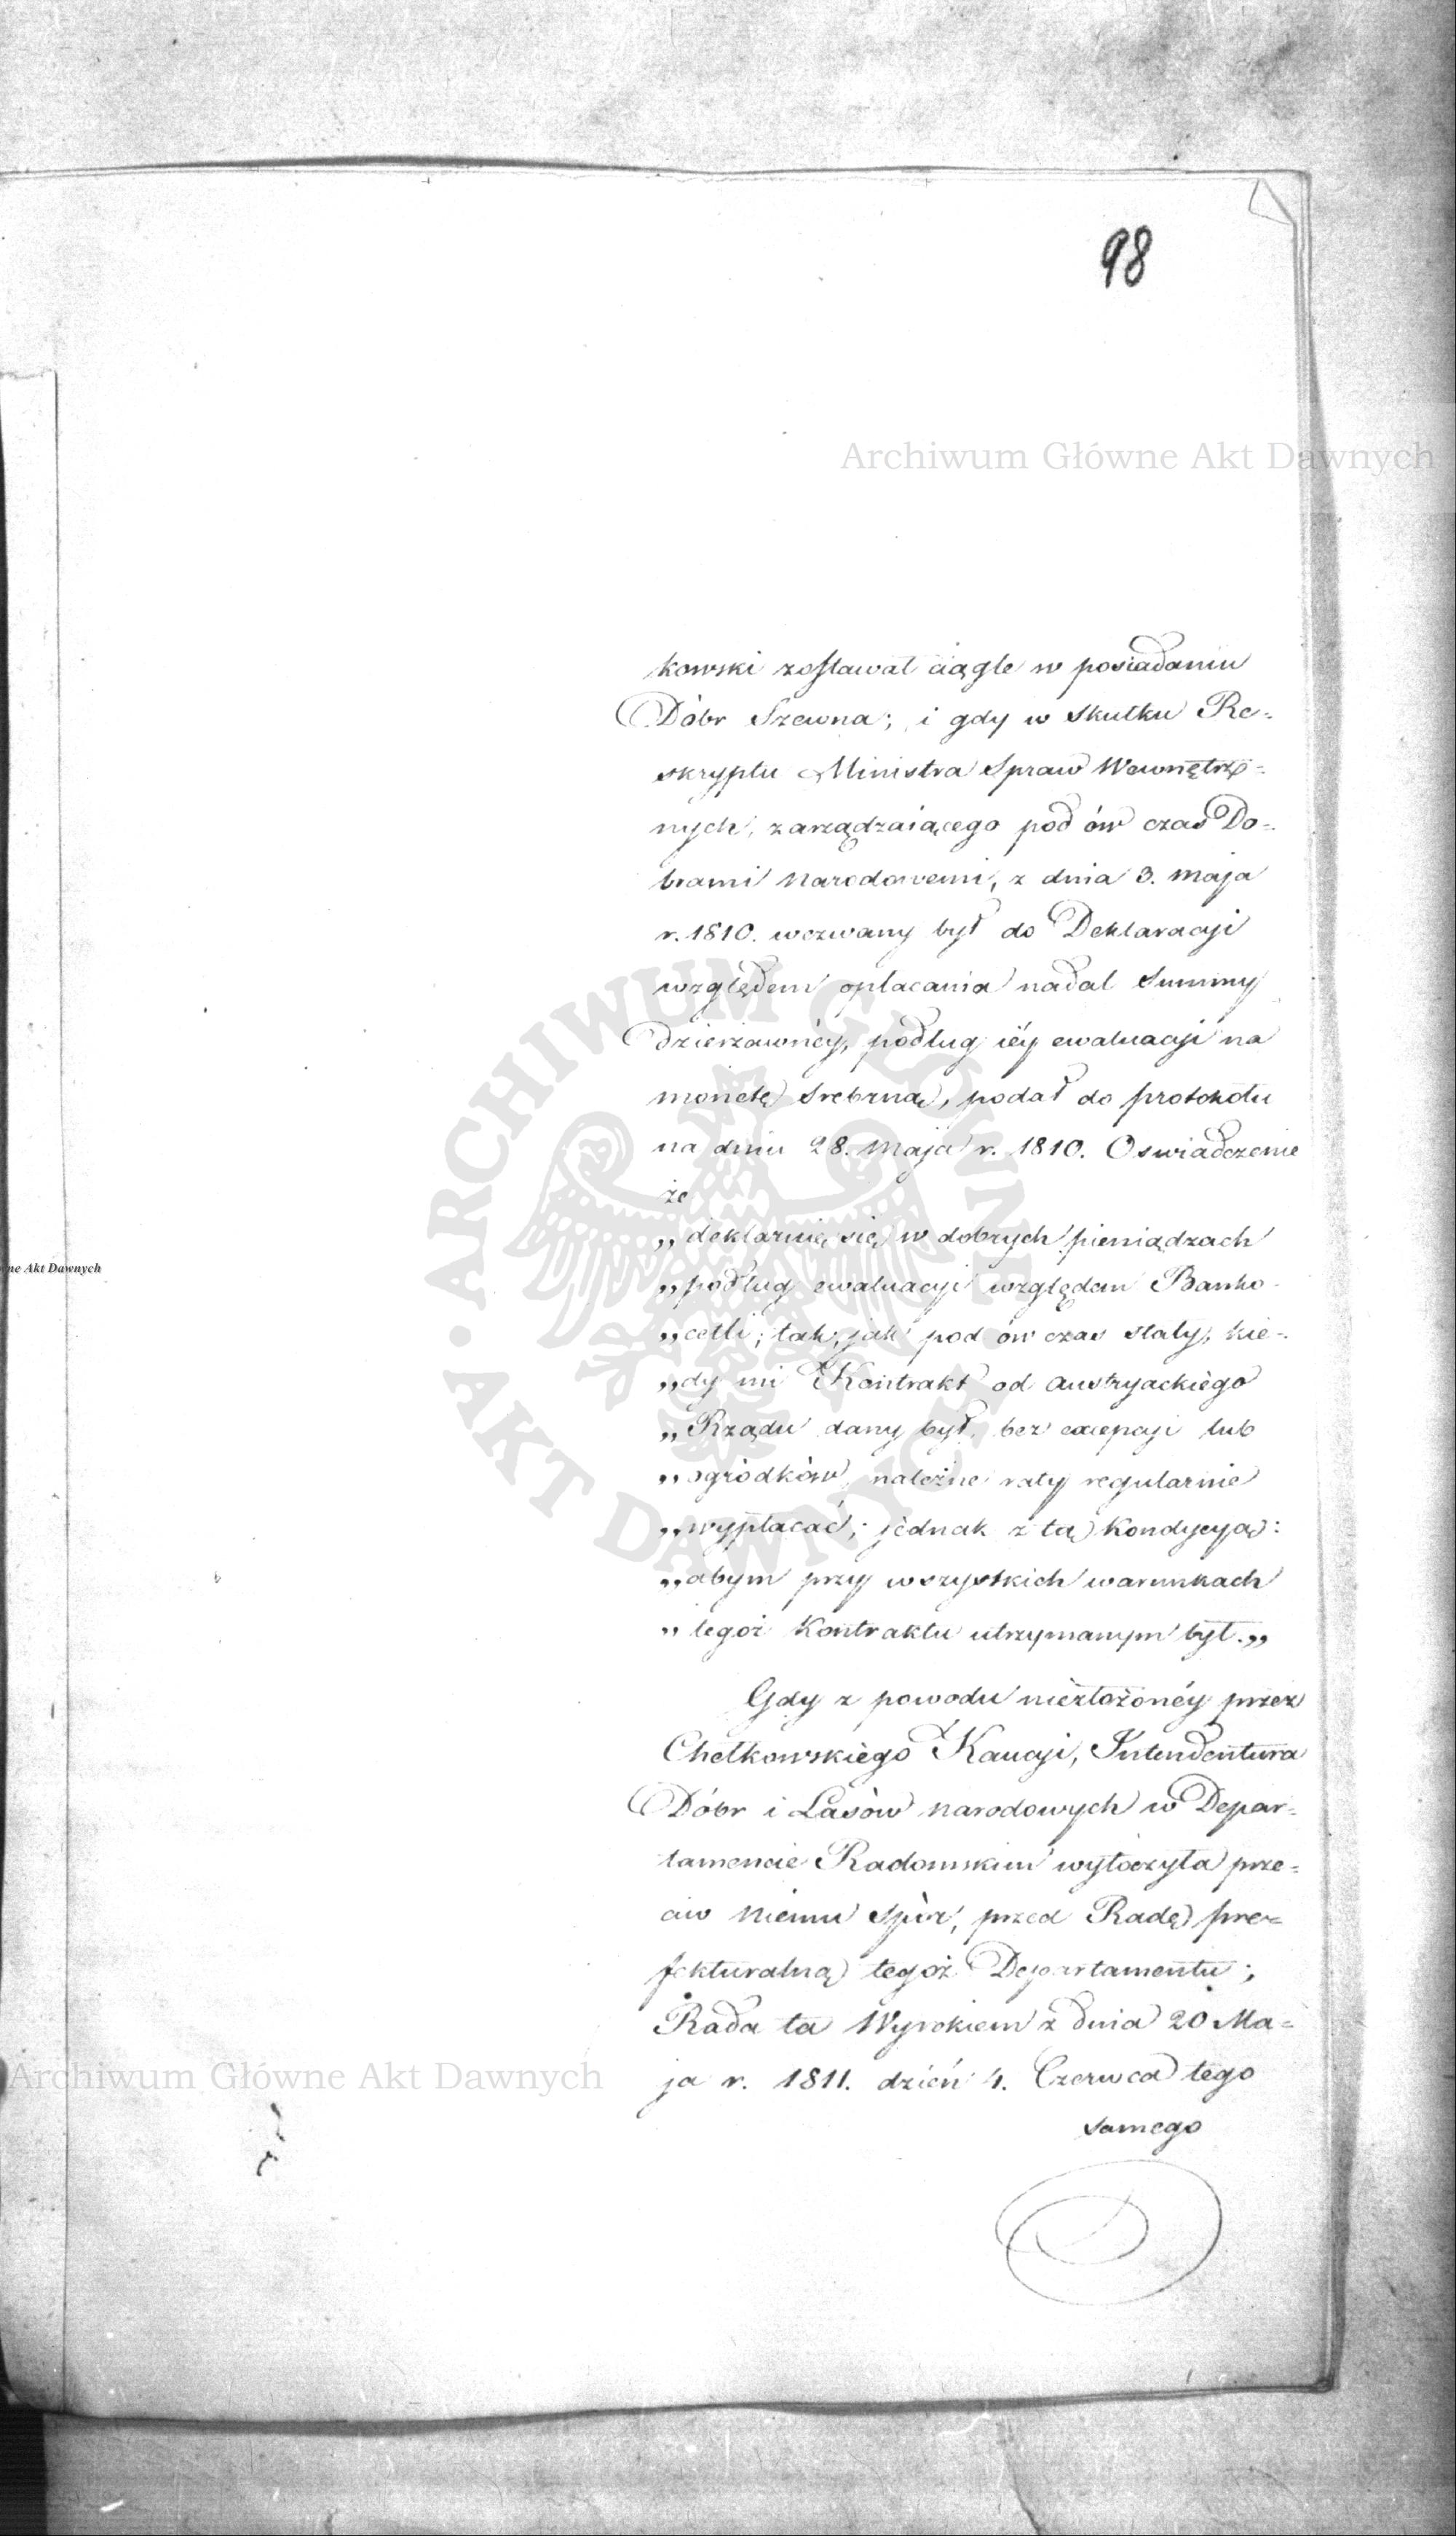 98
Archiwum Główne Akt Dawnych
kowski zostawał ciągle w posiadaniu
Dóbr Szewna; i gdy w skutku Re-
skryptu Ministra Spraw Wewnętrz-
nych, zarządzaiącego pod ów czas Do-
brami Narodowemi, z dnia 3. Maja
r. 1810. wezwany był do Deklaracyi
względem opłacania nadal Summy
Dzierżawnéy, podług iéy ewaluacyi na
monetę srebrną, podał do protokołu
na dniu 28. Maja r. 1810. Oswiadczenie
że
„deklaruię się w dobrych pieniądzach
„podług ewaluacyi względem Banko-
„cetli, tak, jak pod ów czas stały, kie-
„dy mi Kontrakt od Austryackiégo
„Rządu dany był, bez excepcyi lub
„ogródków, należne raty regularnie
„wypłacać; jednak z tą Kondycyą:
„abym przy wszystkich warunkach
„tegoż Kontraktu utrzymanym był.„
Gdy z powodu niezłożonéy przez
Chełkowskiégo Kaucyi, Intendentura
Dóbr i Lasów Narodowych w Depar-
tamencie Radomskim wytoczyła prze-
ciw niemu spór, przed Radę Pre-
fekturalną tegoż Departamentu;
Rada ta Wyrokiem z dnia 20 Ma-
ja r. 1811. dzień 4. Czerwca tego
samego
ne Akt Dawnych
Archiwum Główne Akt Dawnych
ARCHIWUM GŁÓWNE AKT DAWNYCH